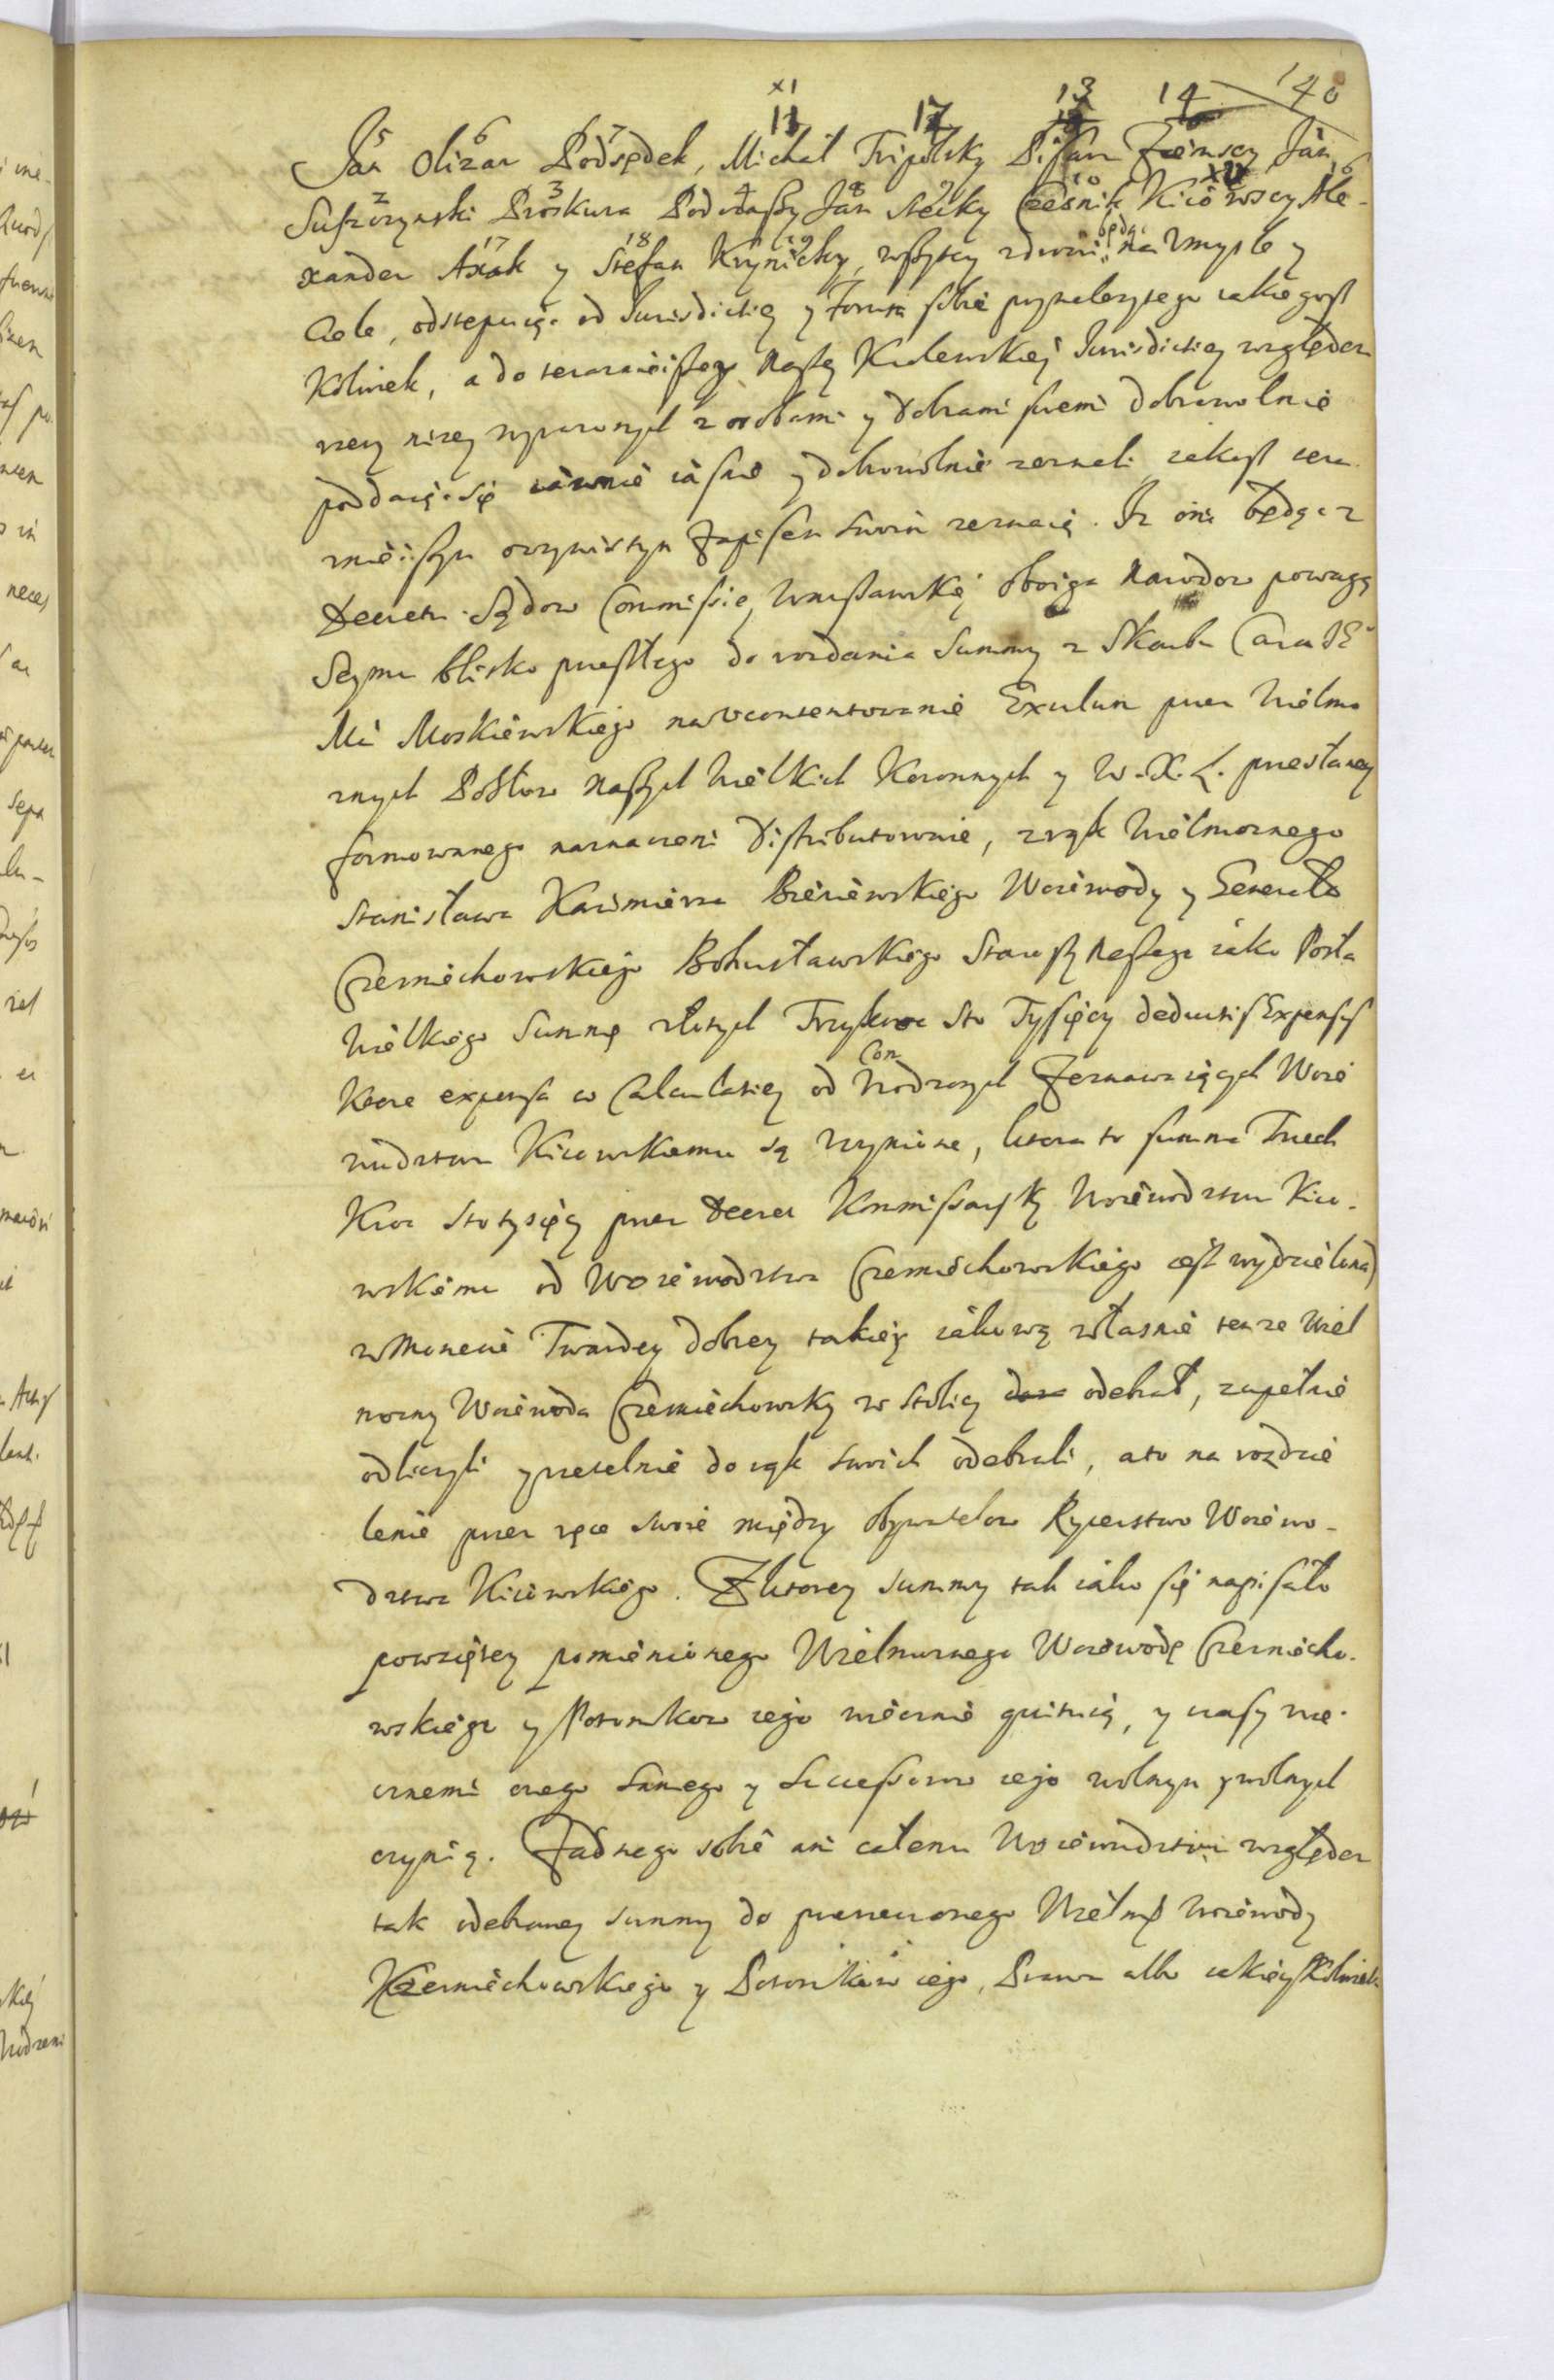 140
XI
11 12 13 14
5 6 7
Jan Olizar Podsędek, Michał Tripolsky Pisarz Ziemscy Jan
2 3 4 8 9 10 XV 16
Suszczynski Proskura Podczaszy Jan Stecky Czesnik Kiiowscy Ale-
17 18 19 będąc
xander Axak y Stefan Krynicky, wszyscy zdrowi na Vmysle y
Ciele, odstępuiąc od Iurisdictiey y Forum sobie przynależytego iakiegosz
Kolwiek, a do teraznieiszego Naszey Krolewskiey Iurisdictiey względem
rzeczy niżey wyrazonych z osobami y Dobrami swemi dobrowolnie
poddaiąc się iawnie iasnie y dobrowolnie zeznali iakosz tera
znieiszym oczywistym Zapisem swoim zeznaią. Iz oni będąc z
Decretu Sądow Commissiey Warszawskiey oboiga Narodow powagą
Seymu blisko przeszłego do rozdania Summy z Skarbu Cara IE°
Mci Moskiewskiego na Vcontentowanie Exulum przez Wielmo
znych Posłow Naszych Wielkich Koronnych y W. X. L. przestaney
formowanego naznaczeni Distributowaniu, z rąk Wielmoznego
Stanisława Kazimierza Bieniewskiego Woiewody y Generała
Czerniechowskiego Bohusławskiego Starosty Naszego iako Posła
Wielkiego Summę złotych Trzykroc Sto Tysięcy deductis Expensis
Con
Ktore expensa w Calculatiey od Wrodzonych Zeznawaiących Woie
wudztwu Kiiowskiemu są wczynione, ktora to summa Trzech
Kroc Stotysięcy przez Decret Kommissarsky Woiewodztwu Kiio-
wskiemu od Woiewodztwa Czerniechowskiego iest wydzielona)
w Monecie Twardey dobrey takiey iakową własnie tenze Wiel
mozny Woiewoda Czerniechowsky w Stolicy odebrał, zupełnie
odliczyli y rzetelnie do rąk swoich odebrali, a to na rozdzie
lenie przez ręce swoie między obywatelow Rycerstwo Woiewo-
dztwa Kiiowskiego. Z ktorey Summy tak iako się napisało
powziętey pomienionego Wielmoznego Woiewodę Czerniecho-
wskiego y Potomkow iego wiecznie quituią, y czasy wie-
cznemi onego samego y Successorow iego wolnym y wolnych
czynią. Zadnego sobie ani całemu Woiewudztwu względem
tak odebraney Summy do przerzeczonego Wielmoz Woiewody
Czerniechowskiego y Potomkow iego, Prawa albo iakieyszkolwiek